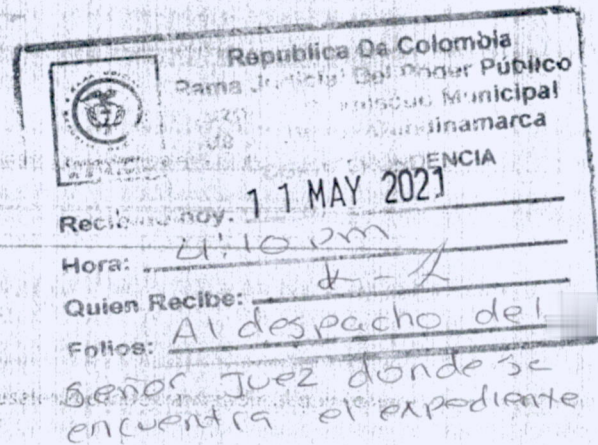 República De Colombia
Rama Judicial Del Poder Público
Municipal
CORRESPONDENCIA
Recibido hoy. 11 MAY 2021
Hora: 4:10 pm
Quien Recibe:
Folios: Al despacho del
Señor Juez donde se
encuentra el expediente